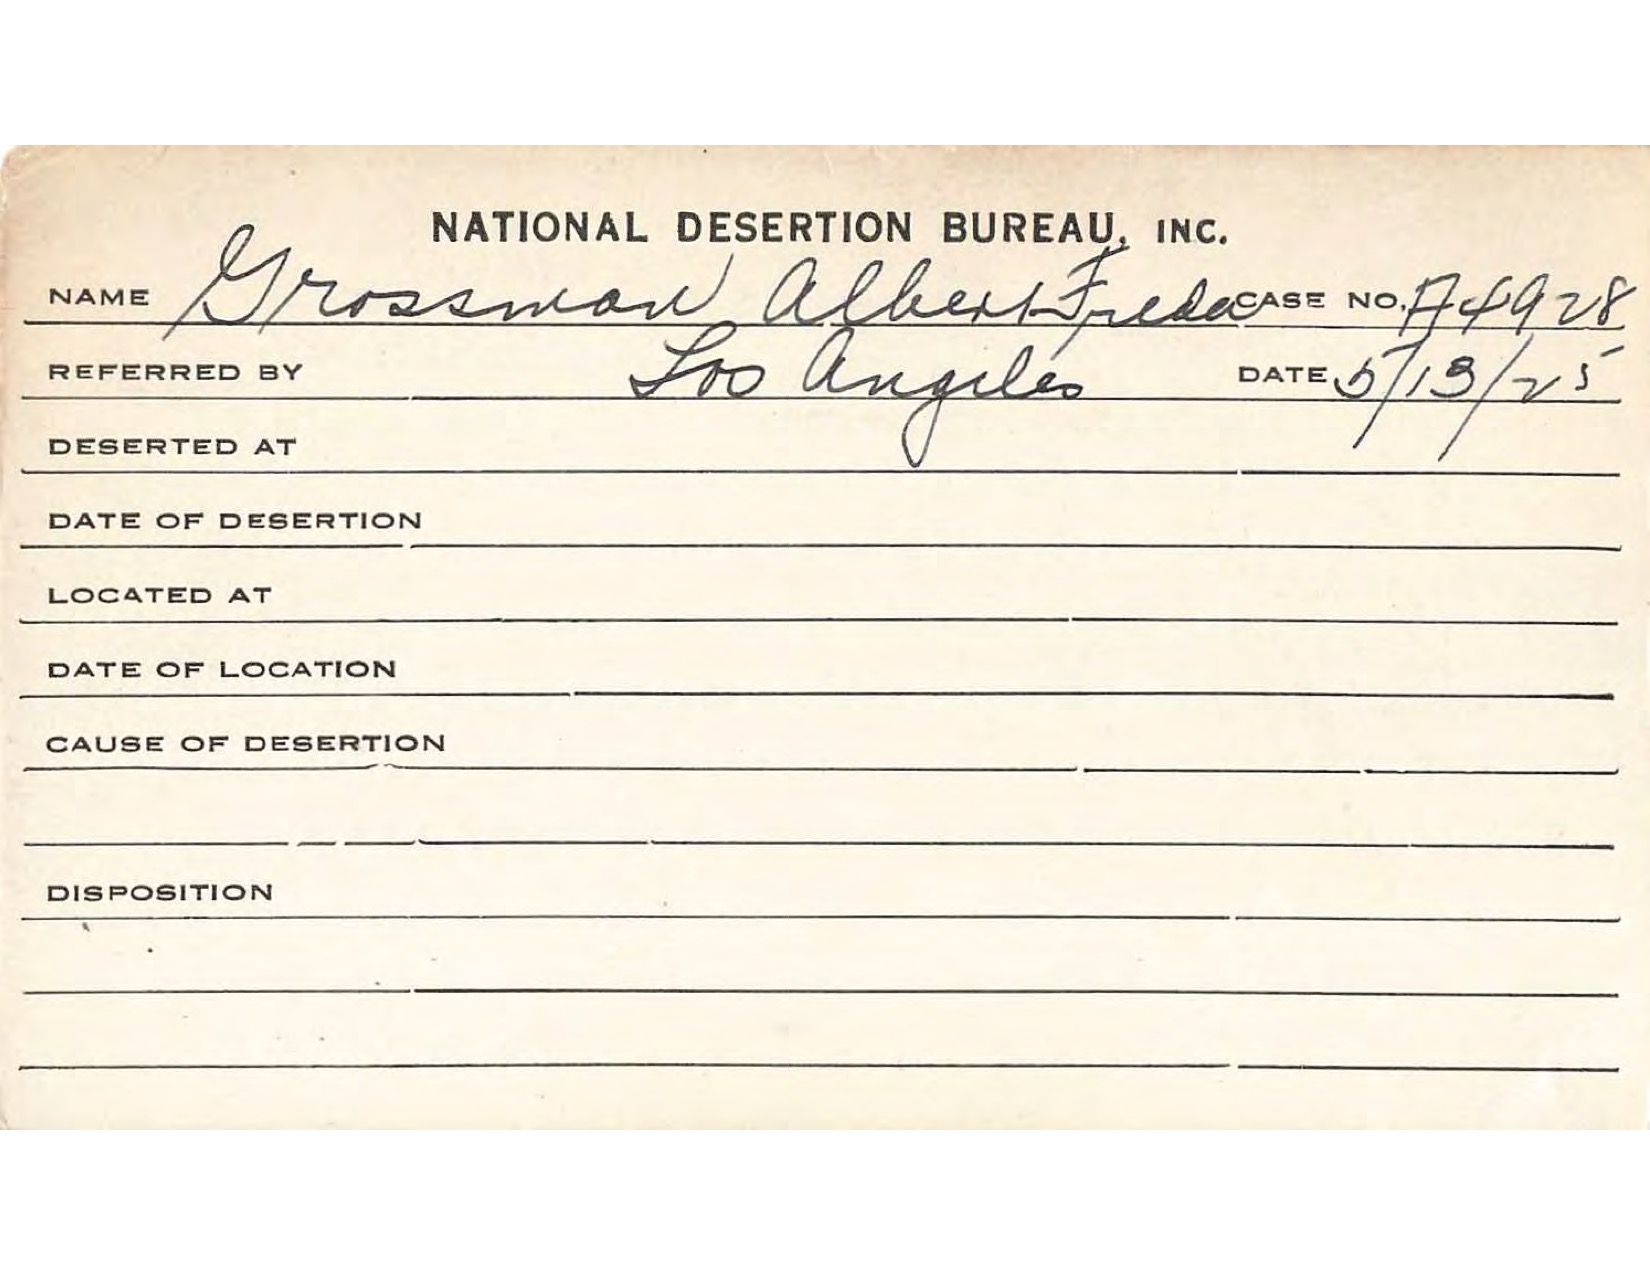 NATIONAL DESERTION BUREAU, INC.
NAME Grossman Albert Freda CASE NO. A4928
REFERRED BY Los Angeles DATE 5/13/25
DESERTED AT
DATE OF DESERTION
LOCATED AT
DATE OF LOCATION
CAUSE OF DESERTION
DISPOSITION